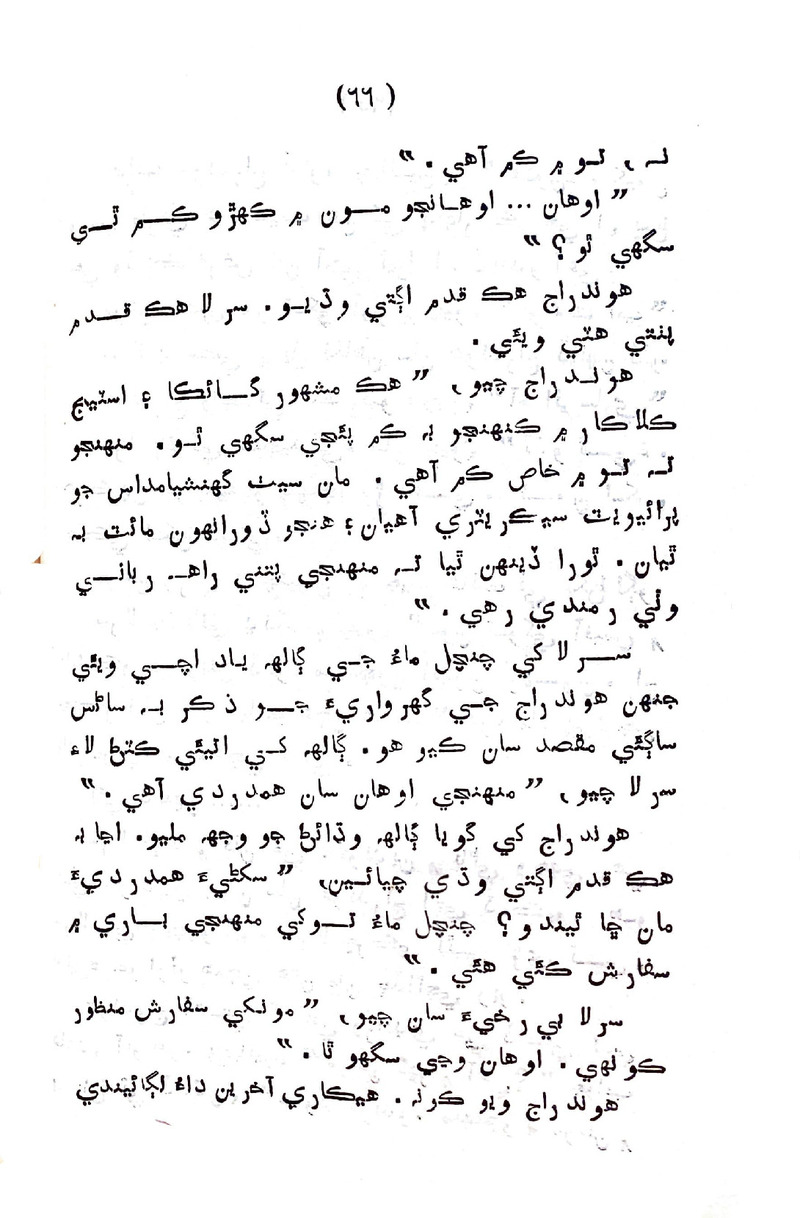 (٦٦)
تہ، تو ۾ ڪم آهي.”
”اوهان... اوهانجو مون ۾ ڪهڙو ڪم ٿي
سگهي ٿو؟“
هوندراج هڪ قدم اڳتي وڌيو. سرلا هڪ قدم
پنتي هٽي ويئي.
هوندراج چيو، ”هڪ مشهور گائڪا ۽ اسٽيج
ڪلاڪار ۾ ڪنهنجو بہ ڪم پئجي سگهي ٿو. منهنجو
تہ تو ۾ خاص ڪم آهي. مان سيٺ گهنشيامداس جو
پرائيويٽ سيڪريٽري آهيان ۽ هنجو ڏورانهون مائٽ بہ
ٿيان. ٿورا ڏينهن ٿيا تہ منهنجي پتني راهہ رباني
وٺي رمندي رهي.“
سرلا کي چنچل ماءُ جي ڳالهہ ياد اچي ويئي
جنهن هوندراج جي گهرواريءَ جو ذڪر بہ ساڻس
ساڳئي مقصد سان ڪيو هو. ڳالهہ کي اتيئي ڪٽڻ لاءِ
سرلا چيو، ”منهنجي اوهان سان همدردي آهي.“
هوندراج کي گويا ڳالهہ وڌائڻ جو وجهہ مليو. اڃا بہ
هڪ قدم اڳتي وڌي چيائين، ”سڪڻيءَ همدرديءَ
مان ڇا ٿيندو؟ چنچل ماءُ توکي منهنجي باري ۾
سفارش ڪئي هئي.“
سرلا بي رخيءَ سان چيو، ”مونکي سفارش منظور
ڪونهي. اوهان وڃي سگهو ٿا.“
هوندراج ويو ڪونہ. هيڪاري آخرين داءُ لڳائيندي